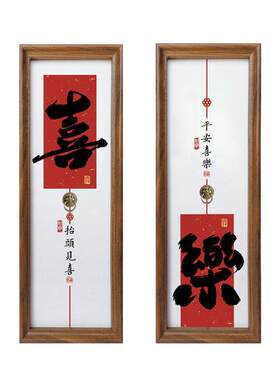 喜
抬頭見喜
平安喜樂
樂